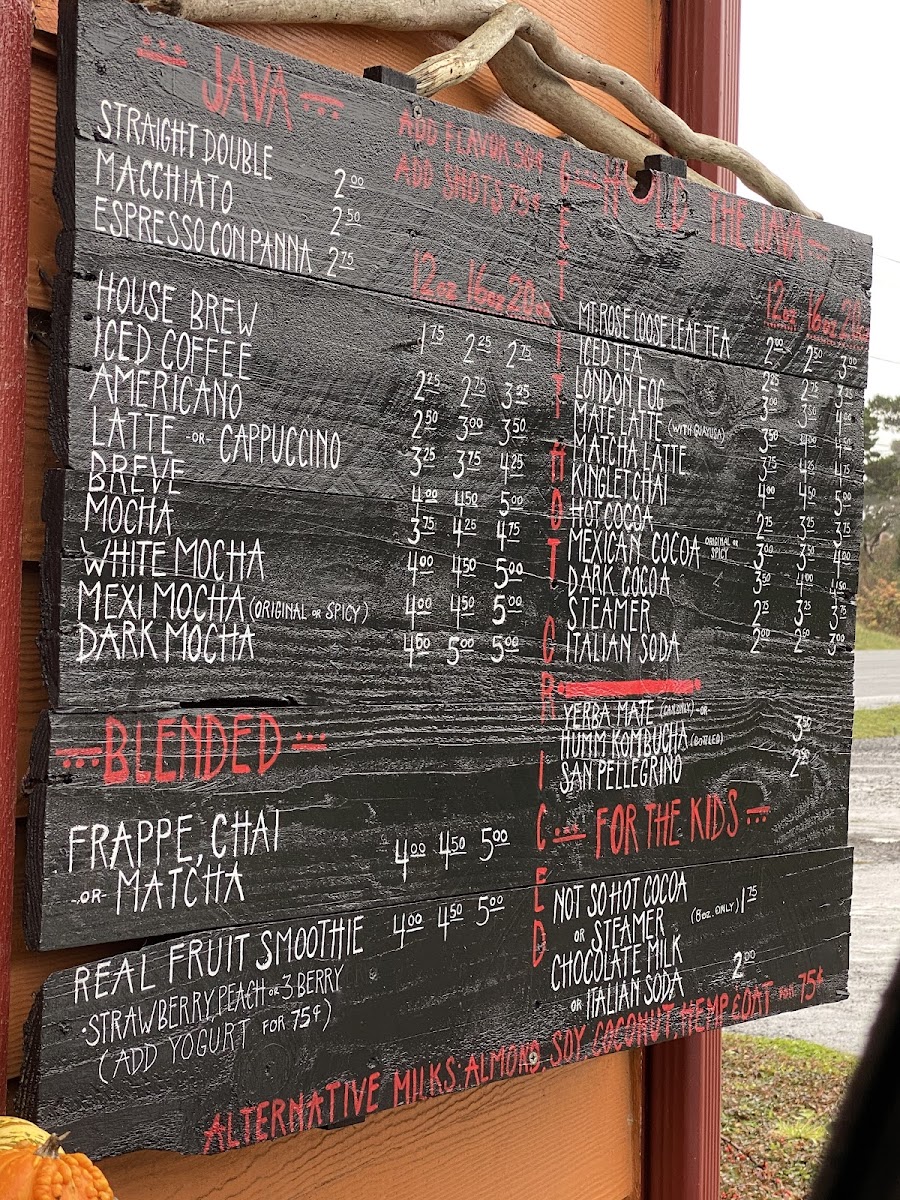 JAVA
ADD FLAVOR 50¢
ADD SHOTS 75¢
STRAIGHT DOUBLE 2.00
MACCHIATO 2.50
ESPRESSO CON PANNA 2.75
12oz 16oz 20oz
HOUSE BREW 1.75 2.25 2.75
ICED COFFEE 2.25 2.75 3.25
AMERICANO 2.50 3.00 3.50
LATTE -OR- CAPPUCCINO 3.25 3.75 4.25
BREVE 4.00 4.50 5.00
MOCHA 3.75 4.25 4.75
WHITE MOCHA 4.00 4.50 5.00
MEXI MOCHA (ORIGINAL OR SPICY) 4.00 4.50 5.00
DARK MOCHA 5.00
BLENDED
FRAPPE, CHAI
-OR- MATCHA 4.00 4.50 5.00
REAL FRUIT SMOOTHIE 4.00 4.50 5.00
·STRAWBERRY, PEACH OR 3 BERRY
(ADD YOGURT FOR 75¢)
GET IT HOT OR ICED
HOLD THE JAVA
12oz 16oz 20oz
MT. ROSE LOOSE LEAF TEA 2.00 2.50 3.00
ICED TEA 2.25 2.75 3.25
LONDON FOG 3.00 3.50 4.00
MATE LATTE (WITH GUAYUSA) 3.50 4.00 4.50
MATCHA LATTE 3.75 4.25 4.75
KINGLET CHAI 4.00 4.50 5.00
HOT COCOA 2.75 3.25 3.75
MEXICAN COCOA ORIGINAL OR SPICY 3.00 3.50 4.00
DARK COCOA 3.50 4.00 4.50
STEAMER 2.75 3.25 3.75
ITALIAN SODA 2.00 2.50 3.00
YERBA MATE -OR-
HUMM KOMBUCHA (BOTTLED) 3.50
SAN PELLEGRINO 2.50
FOR THE KIDS
NOT SO HOT COCOA
OR STEAMER (8oz. ONLY) 1.75
CHOCOLATE MILK
OR ITALIAN SODA 2.00
ALTERNATIVE MILKS: ALMOND, SOY, COCONUT, HEMP & OAT FOR 75¢